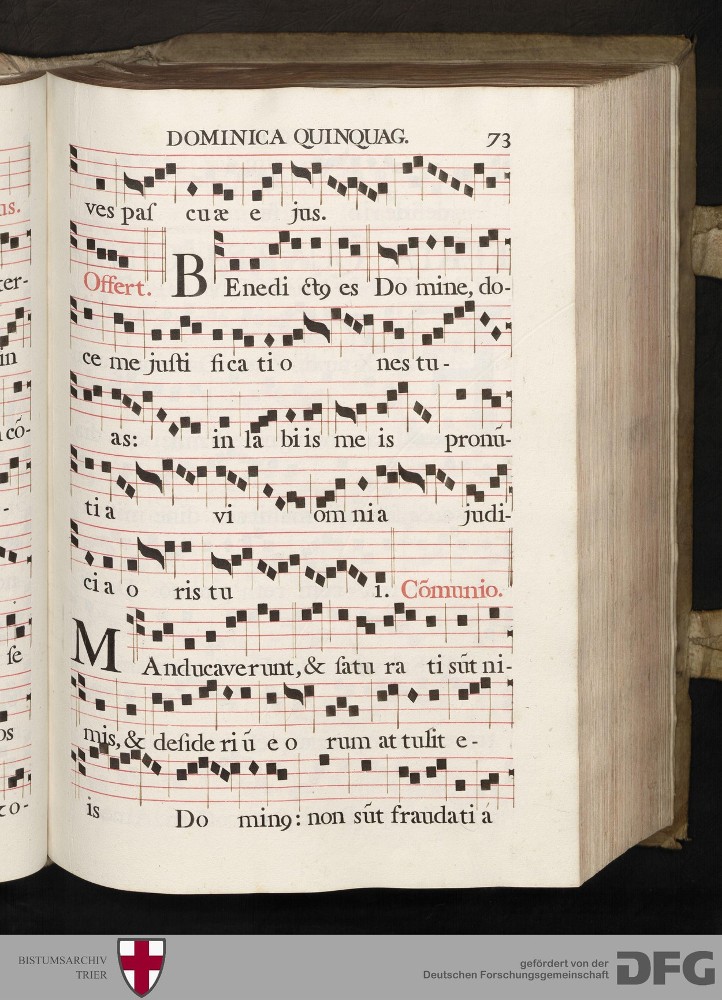 DOMINICA QUINQUAG. 73
us.
ves paſ cu æ e jus.
ter-
Offert. B Enedi ctꝯ es Do mine, do-
in
ce me juſti fi ca ti o nes tu -
cō-
as: in la bi is me is pronū-
-
ti a vi om ni a judi-
ci a o ris tu i. Cōmunio.
ſe
M Anducaverunt, & ſatu ra ti sūt ni-
os
mis, & deſide ri ū e o rum at tulit e -
co-
is Do minꝯ: non sūt fraudati á
BISTUMSARCHIV
TRIER
gefördert von der
Deutschen Forschungsgemeinschaft
DFG